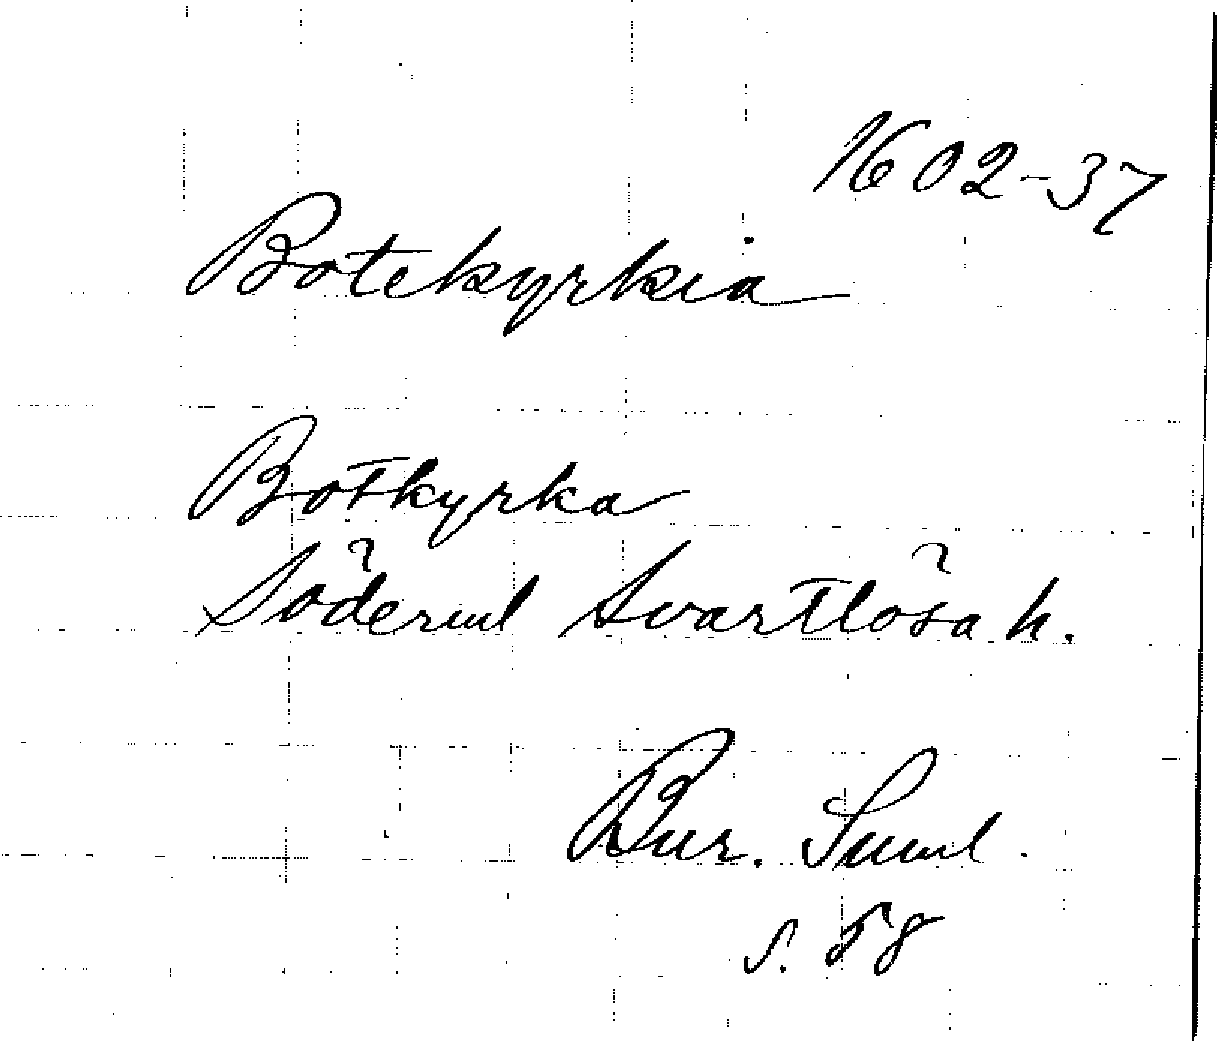 1602-37
Botekyrkia
Botkyrka
Söderml Svartlösa h.
Bur. Suml.
s. 58